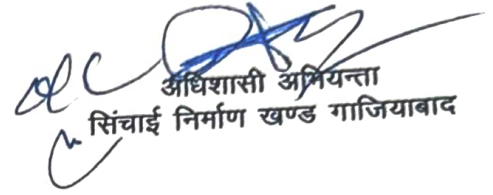 अधिशासी अभियन्ता
सिंचाई निर्माण खण्ड गाजियाबाद